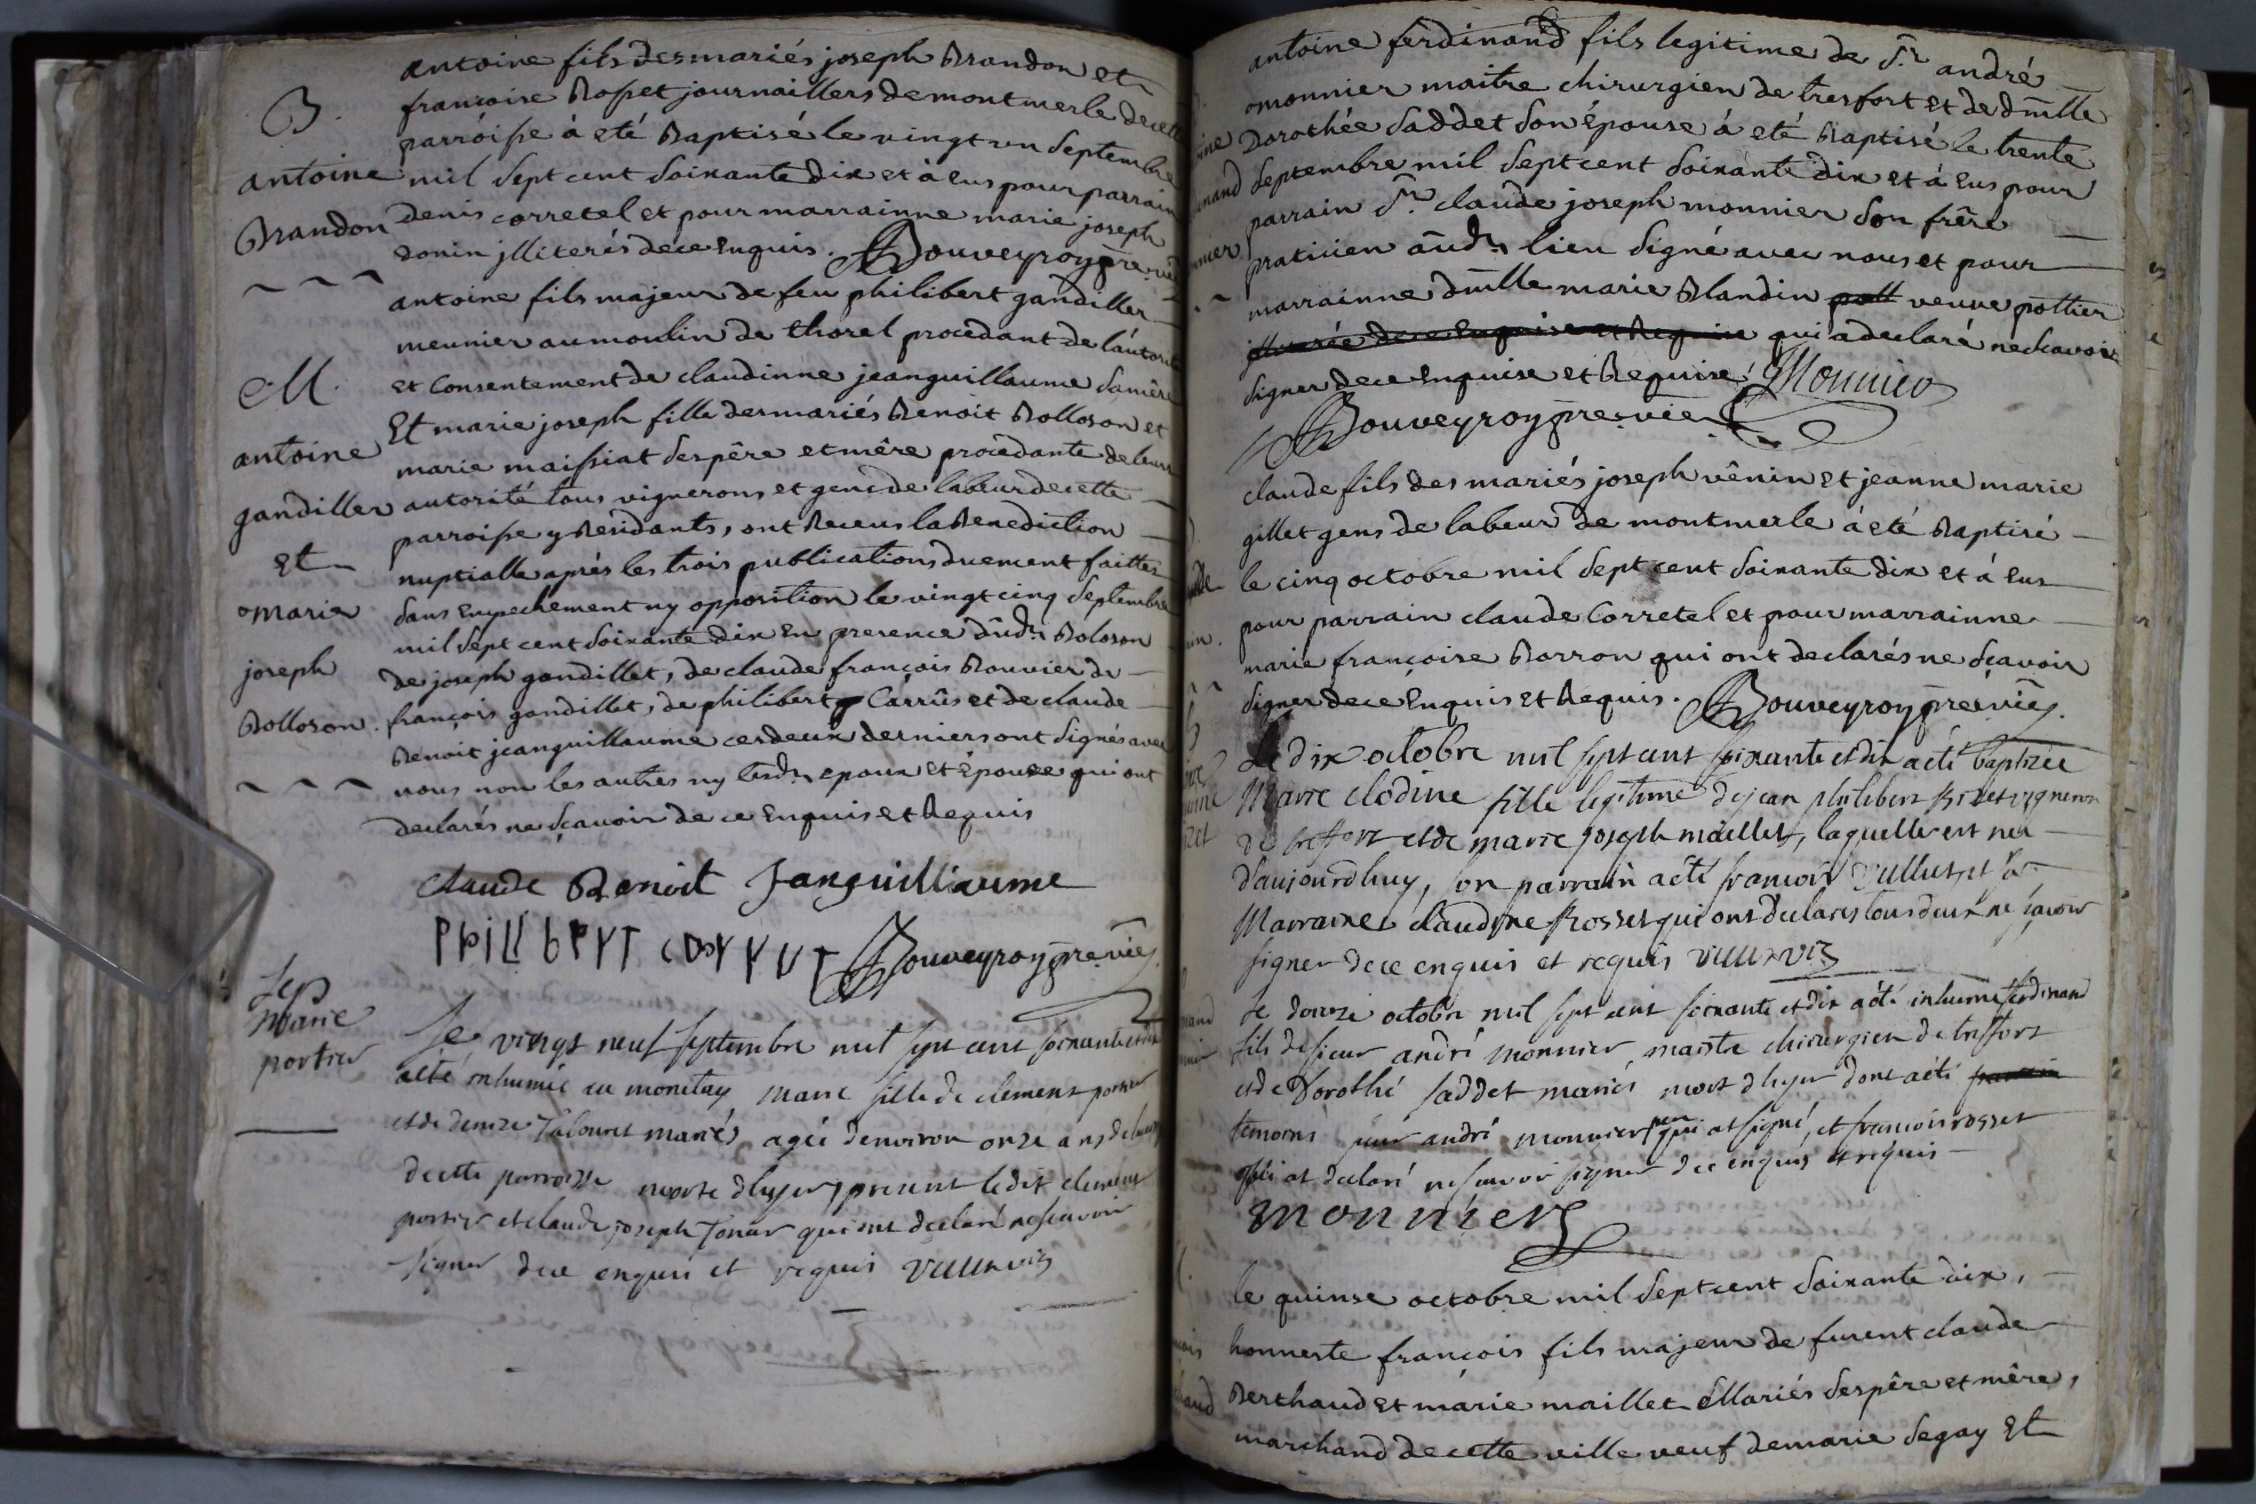 B.
antoine
Brandon
antoine fils des mariés joseph Brandon et
françoise Rosset journailliers de montmerle de cette
parroisse à eté Baptisé le vingt un Septembre
mil Sept cent Soixante dix et à Eus pour parrain
Denis corretel et pour marrainne marie joseph
Donin jlliterés de ce Enquis. Bouveyroy pre. vic
M.
antoine
gandillet
et
marie
joseph
Bolloson.
antoine fils majeur de feu philibert gandillet
meunier au moulin de thorel procedant de l'autorité
et Consentement de claudinne jeanguillaume Sa mêre
Et marie joseph fille des mariés Benoit Bolloson et
marie maissiat Ses pêre et mêre procedante de leur
autorité tous vignerons et gens de labeur de cette
parroisse y Residants, ont Receus la Benediction
nuptialle aprés les trois publications duement faittes
Sans Empechement ny opposition le vingt cinq Septembre
mil Sept cent Soixante dix En presence dûdt Boloson
de joseph gandillet, de claude françois Bouvier de
françois gandillet, de philibert Carrûs et de claude
Benoit jeanguillaume ces deux derniers ont Signés avec
nous non les autres ny lesdts Epoux et Epouse qui ont
declarés ne Sçavoir de ce Enquis et Requis
claude Benoit Janguilliaume
Bouveyroy pre. vic.
Sep
Marie
portier
Le vingt neuf septembre mil sept cent soixante et dix
a été inhumée au monetay marie fille de clement portier
et de denize mariés agée d'environ onze ans
de cette parroisse morte d'hyer, present ledit clement
portier et claude joseph qui ont declaré ne scavoir
signer de ce enquis et requis
antoine ferdinand fils legitime de Sr. andré
monnier maitre chirurgien de tresfort et de dmlle
Dorothée Saddet Son Épouse á eté Baptisé le trente
Septembre mil Sept cent Soixante dix et á Eus pour
parrain Sr. claude joseph monnier Son frêre
praticien audt lieu Signé avec nous et pour
marrainne dmlle marie Blandin veuve pottier
qui a declaré ne Scavoir
Signer de ce Enquise et Requise. Monnier
Bouveyroy pre. vic.
claude fils des mariés joseph vênin et jeanne marie
gillet gens de labeur de montmerle á eté Baptisé
le cinq octobre mil Sept cent Soixante dix et á Eus
pour parrain claude Corretel et pour marrainne
marie françoise Borron qui ont declarés ne Sçavoir
Signer de ce Enquis et Requis. Bouveyroy pre. vic.
Le dix octobre mil sept cent soixante et dix a été baptizée
Marie clodine fille legitime de jean philibert Rozet vigneron
de treffort et de marie joseph maillet, laquelle est née
d'aujourdhuy, son parrain a été francois Vullet, et la
Marraine claudine Rosset qui ont declarés tous deux ne scavoir
signer de ce enquis et requis
le douze octobre mil sept cent soixante et dix a été inhumé ferdinand
fils de sieur andré monnier maitre chirurgien de treffort
et de Dorothé saddet mariés mort d'hyer dont a été
temoins sieur andré monnier pere qui at signé, et francois rosset
qui at declaré ne scavoir signer de ce enquis et requis
monnier
le quinse octobre mil Sept cent Soixante dix,
honneste françois fils majeur de furent claude
Berthaud et marie maillet Mariés Ses pêre et mêre,
marchand de cette ville veuf de marie Segay Et